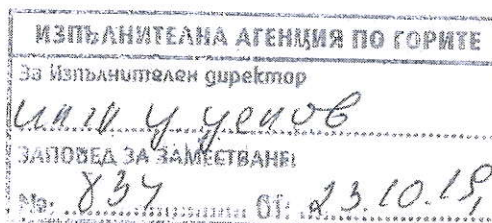 ИЗПЪЛНИТЕЛНА АГЕНЦИЯ ПО ГОРИТЕ
За Изпълнителен директор
инж Ценов
ЗАПОВЕД ЗА ЗАМЕСТВАНЕ:
№: 834 от: 23.10.19